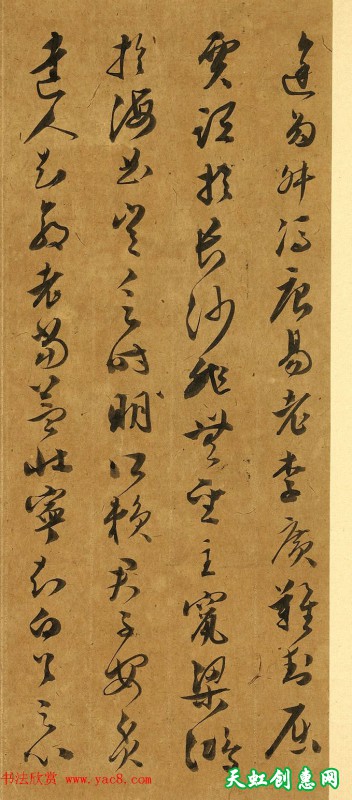 途多舛馮唐易老李廣難封屈
賈誼於長沙非無聖主竄梁鴻
於海曲豈乏時明所賴君子安貧
達人知命老當益壯寧知白首之心
书法欣赏 www.yac8.com
天虹创惠网